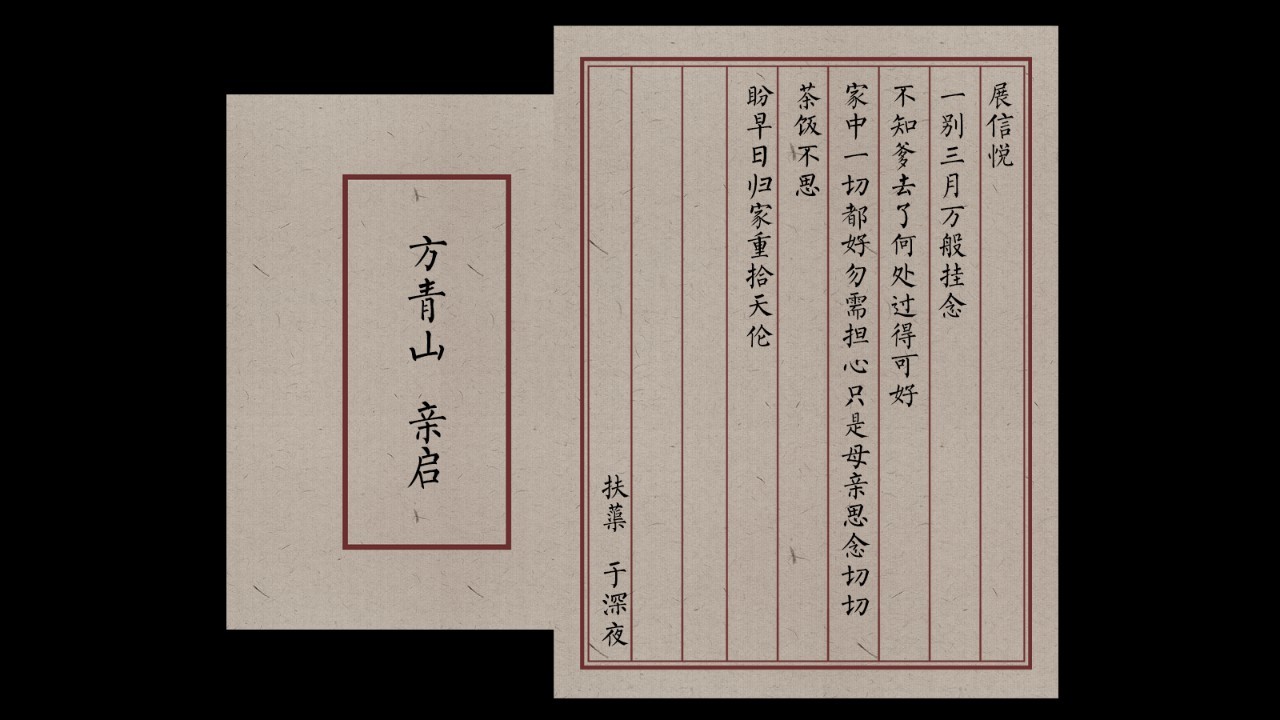 方青山 亲启
展信悦
一别三月万般挂念
不知爹去了何处过得可好
家中一切都好勿需担心只是母亲思念切切
茶饭不思
盼早日归家重拾天伦
扶蕖 于深夜